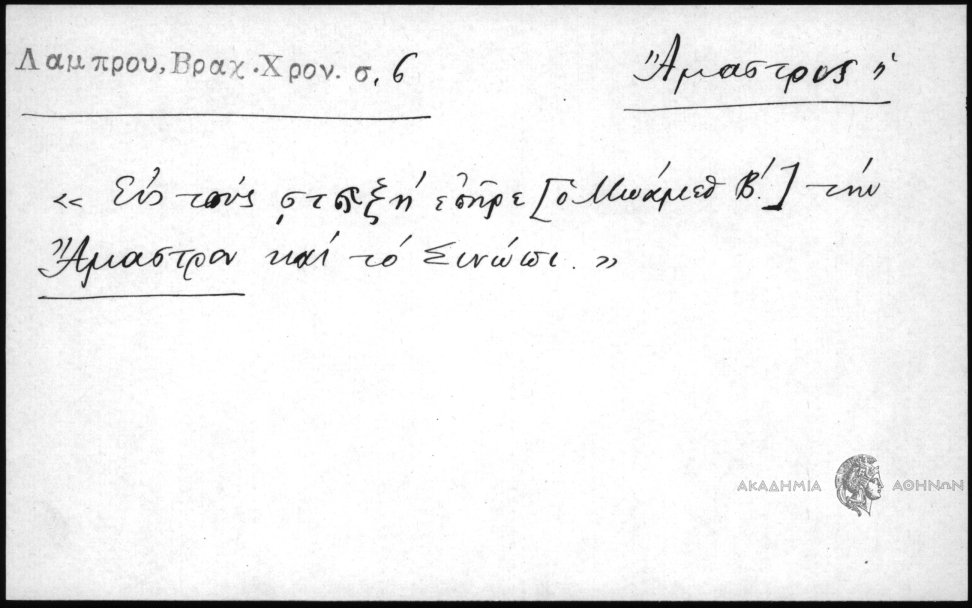 Λαμπρου, Βραχ. Χρον. σ. 6
Ἄμαστρος ἡ
« Εἰς τοὺς ͵ϛϡξή ἐπῆρε [ὁ Μωάμεθ Β΄.] τὴν
Ἄμαστρον καὶ τὸ Σινώπι. »
ΑΚΑΔΗΜΙΑ ΑΘΗΝΩΝ